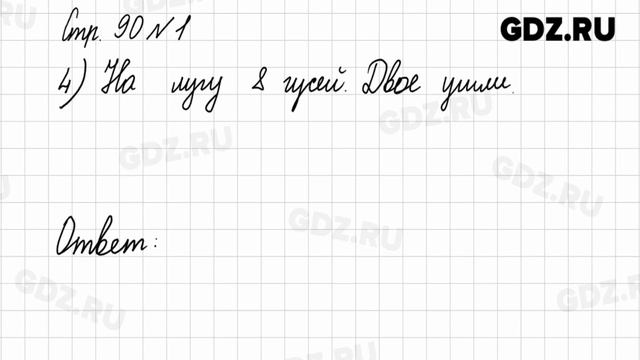 Стр. 90 N 1
GDZ.RU
4) На лугу 8 гусей. Двое ушли.
GDZ.RU
GDZ.RU
GDZ.RU
GDZ.RU
Ответ:
GDZ.RU
GDZ.RU
GDZ.RU